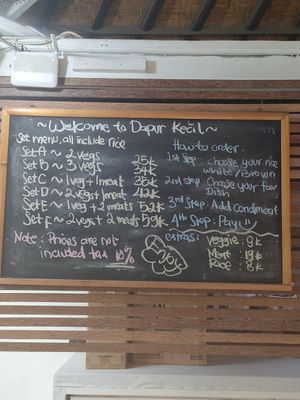 ~ Welcome to Dapur Kecil ~
Set menu, all include rice
Set A ~ 2 vegs 25k
Set B ~ 3 vegs 34k
Set C ~ 1 veg + 1 meat 35k
Set D ~ 2 vegs + 1 meat
Set E ~ 1 veg + 2 meats 52k
Set F ~ 2 vegs + 2 meats 59k
Note : Prices are not
included tax 10%
How to order:
1st Step : Choose your rice
white / Brown
2nd step : Choose your fav
Dish
3rd Step : Add Condiment
4th Step : Pay!!
extras:
Veggie : 9k
Meat : 19k
Rice : 8k